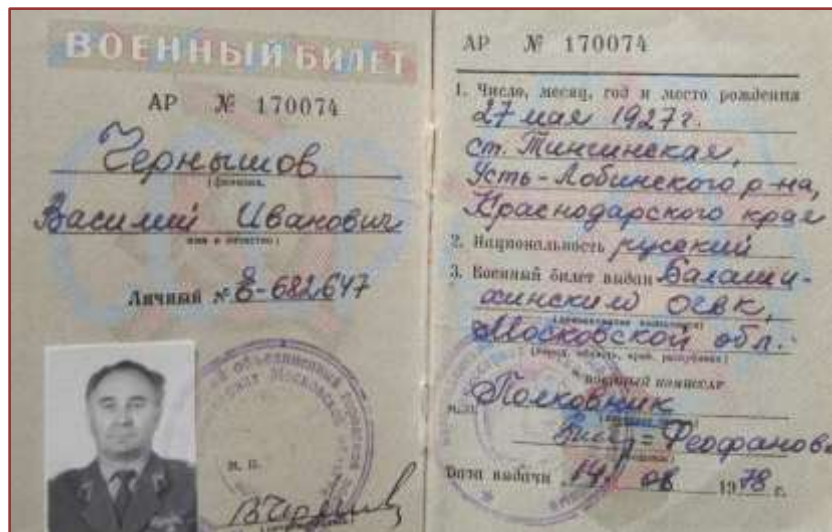 ВОЕННЫЙ БИЛЕТ
АР № 170074
Чернышов
(фамилия,
Василий Иванович
имя и отчество)
Личный № Е-682647
М. П.
АР № 170074
1. Число, месяц, год и место рождения
27 мая 1927г.
ст. Тингинская,
Усть-Лобинского р-на,
Краснодарского края
2. Национальность русский
3. Военный билет выдан Балаши-
хинским ОГВК,
Московской обл.
(город, область, край, республика)
Военный комиссар
М.П. Полковник
Феофанов
Дата выдачи 14. 08 1978 г.